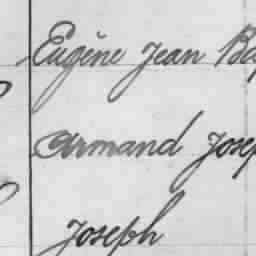 Eugène Jean Ba
Armand Josep
Joseph